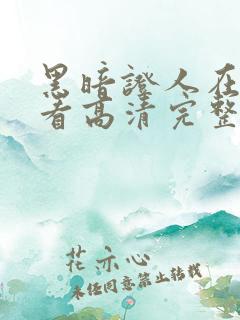 黑暗證人在
看高清完整
花亦心
未经同意禁止转载